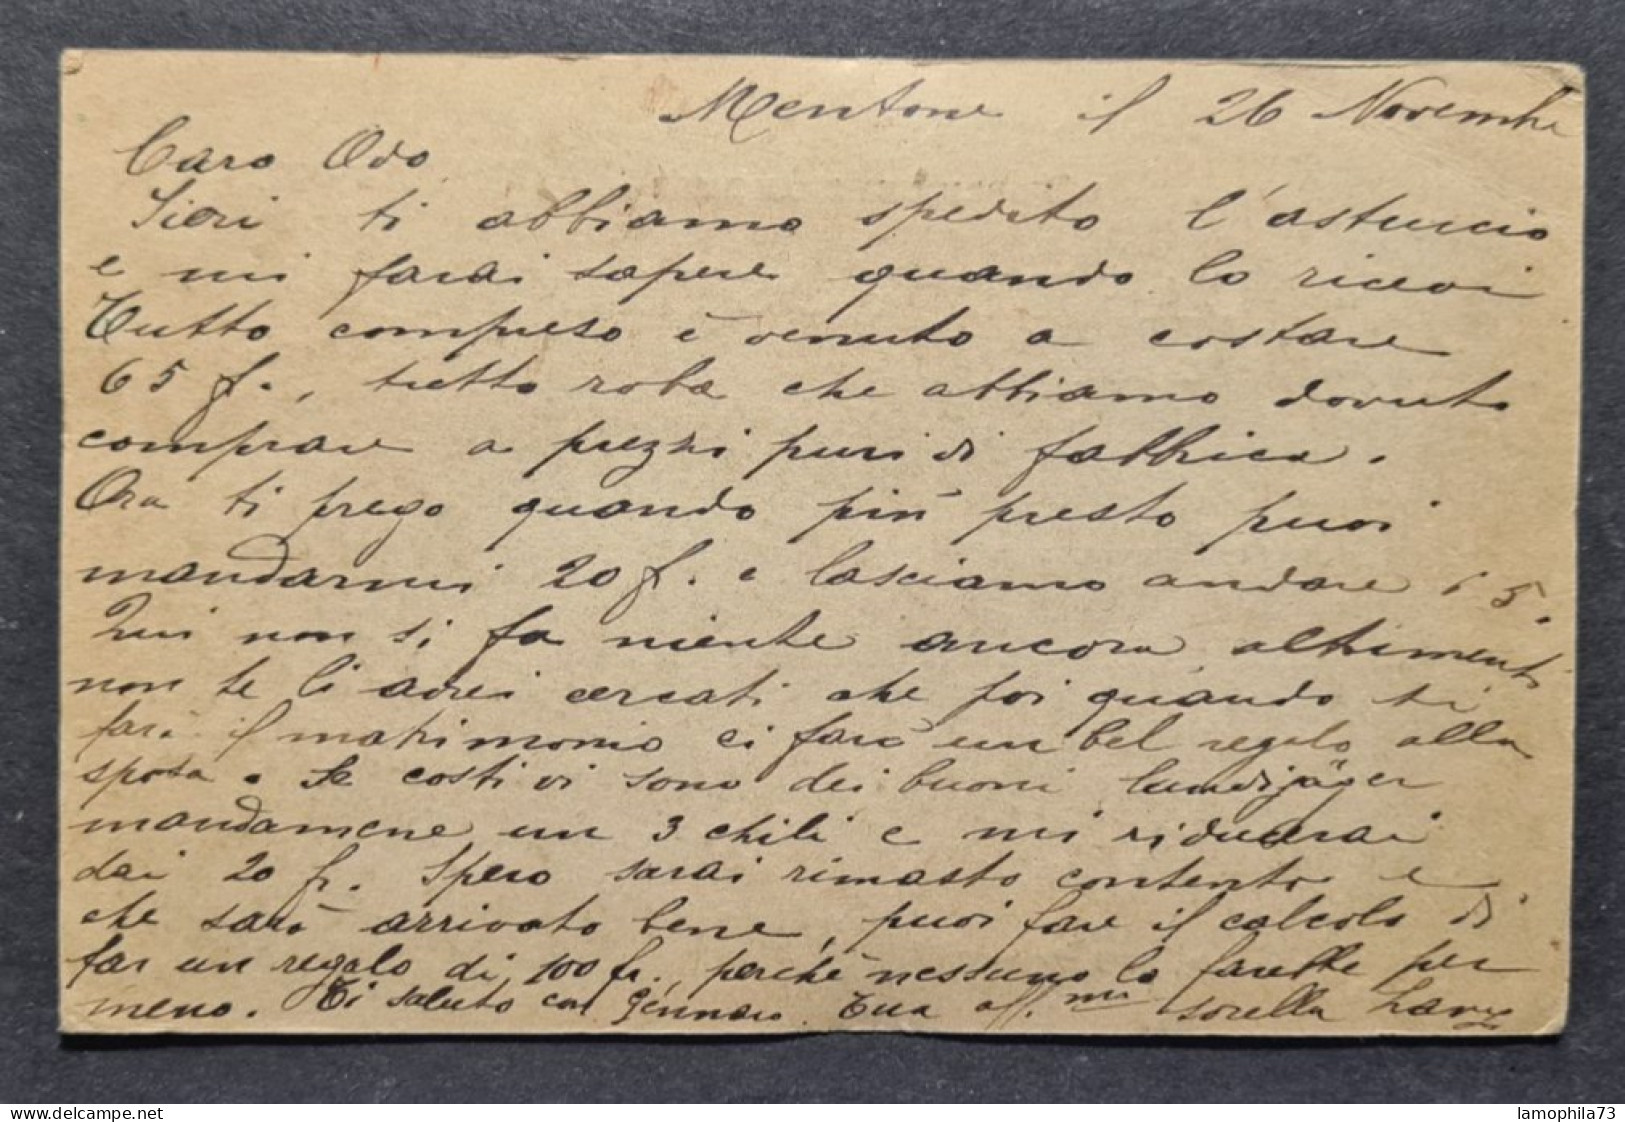 Mentone il 26 Novembre
Caro Odo
Jieri ti abbiamo spedito l'astuccio
e mi farai sapere quando lo ricevi
Tutto compreso è venuto a costare
65 f., tutto roba che abbiamo dovuto
comprare a prezzi puri di fabbrica.
Ora ti prego quando più presto puoi
mandarmi 20 f. e lasciamo andare i 5.
Qui non si fa niente ancora, altrimenti
non te li avrei cercati che poi quando ti
farai il matrimonio ci farai un bel regalo alla
sposa. Se costi vi sono dei buoni landjäger
mandamene un 3 chili e mi ridurrai
dai 20 fr. Spero sarai rimasto contento e
che sarà arrivato bene, puoi fare il calcolo di
far un regalo di 100 fr., perchè nessuno lo farebbe per
meno. Ti saluto con Gennaro. Tua aff.ma sorella
delcampe.net
lamophila73